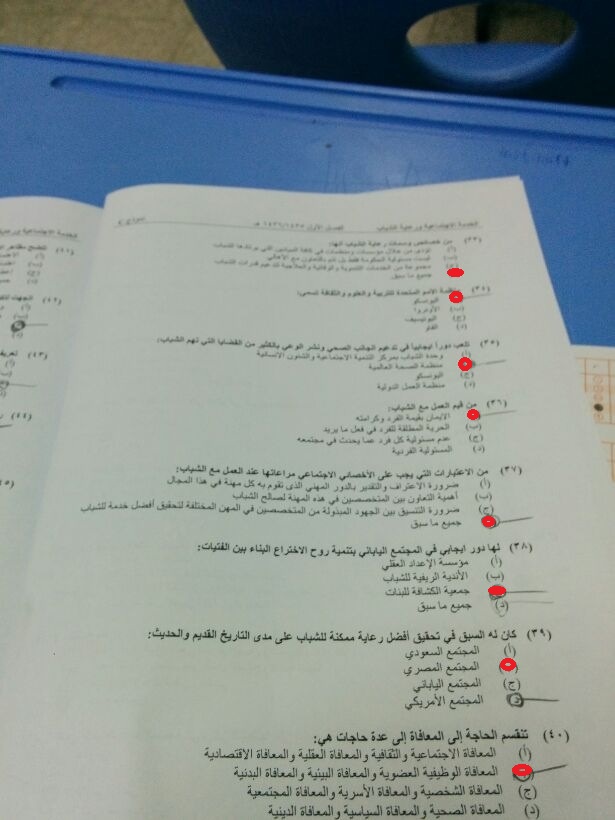 الخدمة الاجتماعية ورعاية الشباب
الفصل الأول ١٤٣٦/١٤٣٥ هـ
(٣٣) من خصائص وسمات رعاية الشباب أنها:
(أ) تؤدى من خلال مؤسسات ومنظمات في كافة الميادين التي يرتادها الشباب
(ب) ليست مسئولية الحكومة فقط بل تتم بالتعاون مع الأهالي
(ج) مجموعة من الخدمات التنموية والوقائية والعلاجية لتدعيم قدرات الشباب
جميع ما سبق
(٣٤) منظمة الأمم المتحدة للتربية والعلوم والثقافة تسمى:
اليونسكو
(ب) الأونروا
(ج) اليونيسيف
(د) الفاو
(٣٥) تلعب دوراً ايجابياً في تدعيم الجانب الصحي ونشر الوعي بالكثير من القضايا التي تهم الشباب:
(أ) وحدة الشباب بمركز التنمية الاجتماعية والشئون الانسانية
منظمة الصحة العالمية
(ج) اليونسكو
(د) منظمة العمل الدولية
(٣٦) من قيم العمل مع الشباب:
الايمان بقيمة الفرد وكرامته
(ب) الحرية المطلقة للفرد في فعل ما يريد
(ج) عدم مسئولية كل فرد عما يحدث في مجتمعه
(د) المسئولية الفردية
(٣٧) من الاعتبارات التي يجب على الأخصائي الاجتماعي مراعاتها عند العمل مع الشباب:
(أ) ضرورة الاعتراف والتقدير بالدور المهني الذى تقوم به كل مهنة في هذا المجال
(ب) أهمية التعاون بين المتخصصين في هذه المهنة لصالح الشباب
(ج) ضرورة التنسيق بين الجهود المبذولة من المتخصصين في المهن المختلفة لتحقيق أفضل خدمة للشباب
جميع ما سبق
(٣٨) لها دور ايجابي في المجتمع الياباني بتنمية روح الاختراع البناء بين الفتيات:
(أ) مؤسسة الإعداد العقلي
(ب) الأندية الريفية للشباب
جمعية الكشافة للبنات
(د) جميع ما سبق
(٣٩) كان له السبق في تحقيق أفضل رعاية ممكنة للشباب على مدى التاريخ القديم والحديث:
(أ) المجتمع السعودي
المجتمع المصري
(ج) المجتمع الياباني
(د) المجتمع الأمريكي
(٤٠) تنقسم الحاجة إلى المعافاة إلى عدة حاجات هي:
(أ) المعافاة الاجتماعية والثقافية والمعافاة العقلية والمعافاة الاقتصادية
المعافاة الوظيفية العضوية والمعافاة البيئية والمعافاة البدنية
(ج) المعافاة الشخصية والمعافاة الأسرية والمعافاة المجتمعية
(د) المعافاة الصحية والمعافاة السياسية والمعافاة الدينية
(٤١)
(٤٢)
(٤٣)
(٤٤)